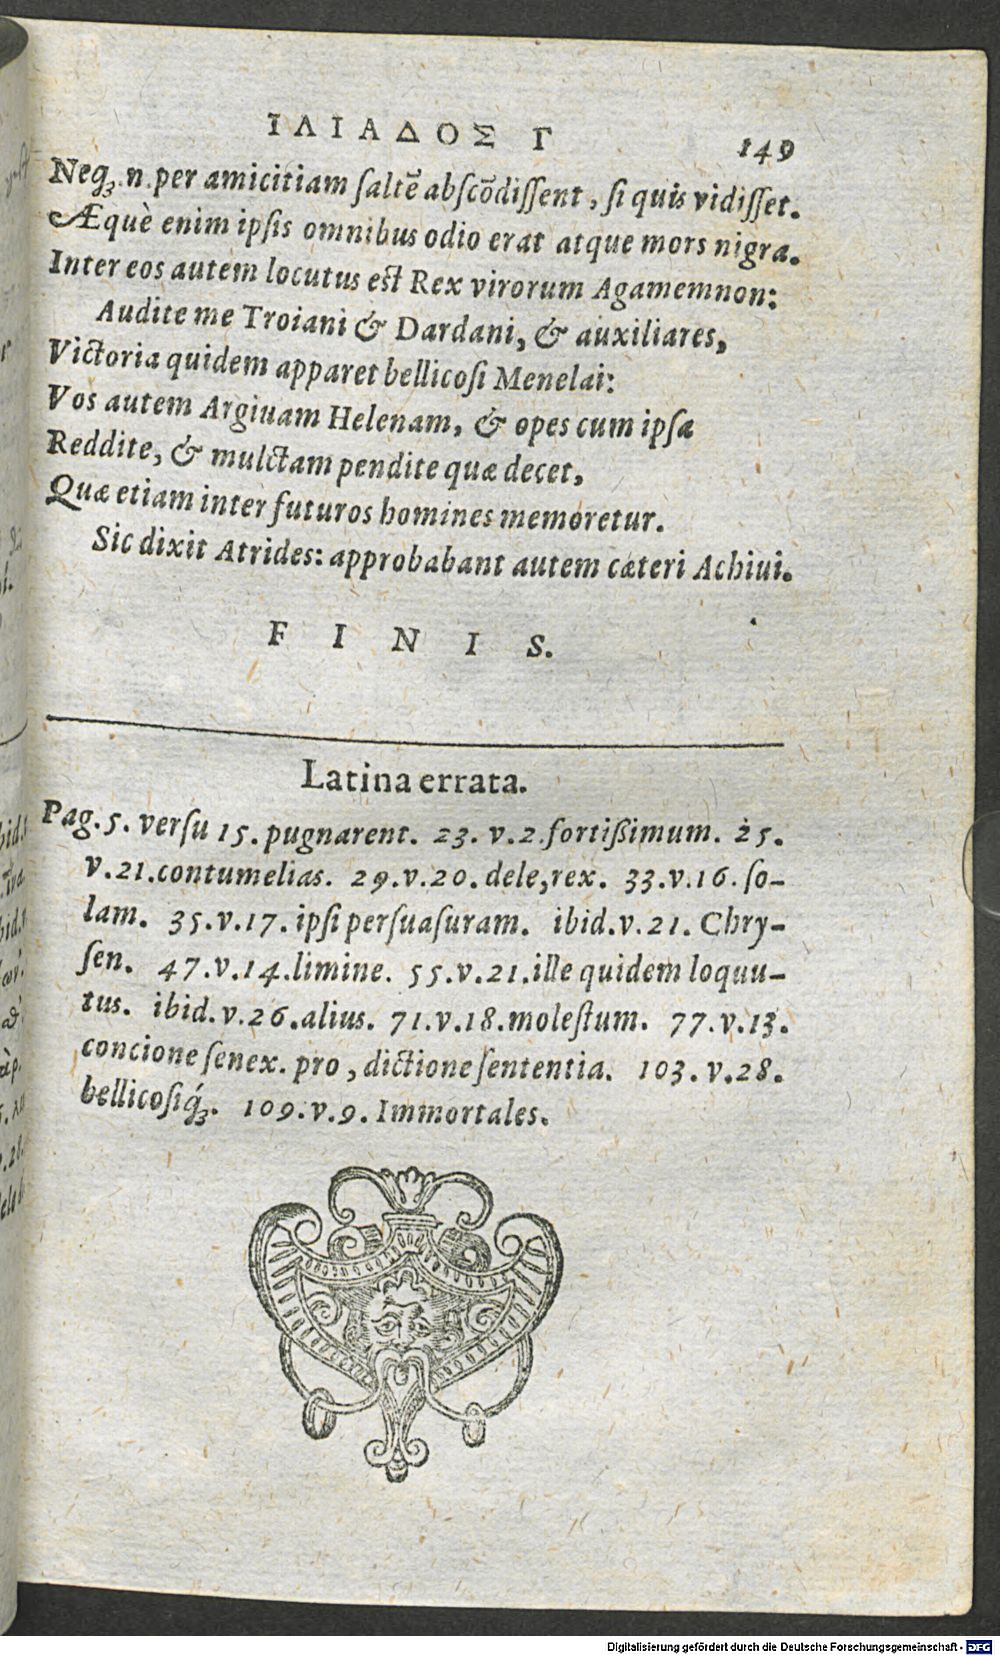 ΙΛΙΑΔΟΣ Γ 149
Neqꝫ .n. per amicitiam ſaltē abſcōdiſſent, ſi quis vidiſſet.
Æquè enim ipſis omnibus odio erat atque mors nigra.
Inter eos autem locutus est Rex virorum Agamemnon:
Audite me Troiani & Dardani, & auxiliares,
Victoria quidem apparet bellicoſi Menelai:
Vos autem Argiuam Helenam, & opes cum ipſa
Reddite, & mulctam pendite quæ decet,
Quæ etiam inter futuros homines memoretur.
Sic dixit Atrides: approbabant autem cæteri Achiui.
FINIS.
Latina errata.
Pag. 5. verſu 15. pugnarent. 23. v. 2. fortiſsimum. 25.
v. 21. contumelias. 29. v. 20. dele, rex. 33. v. 16. ſo-
lam. 35. v. 17. ipſi perſuaſuram. ibid. v. 21. Chry-
ſen. 47. v. 14. limine. 55. v. 21. ille quidem loquu-
tus. ibid. v. 26. alius. 71. v. 18. moleſtum. 77. v. 13.
concione ſenex. pro, dictione ſententia. 103. v. 28.
bellicoſiq́ꝫ. 109. v. 9. Immortales.
Digitalisierung gefördert durch die Deutsche Forschungsgemeinschaft - DFG